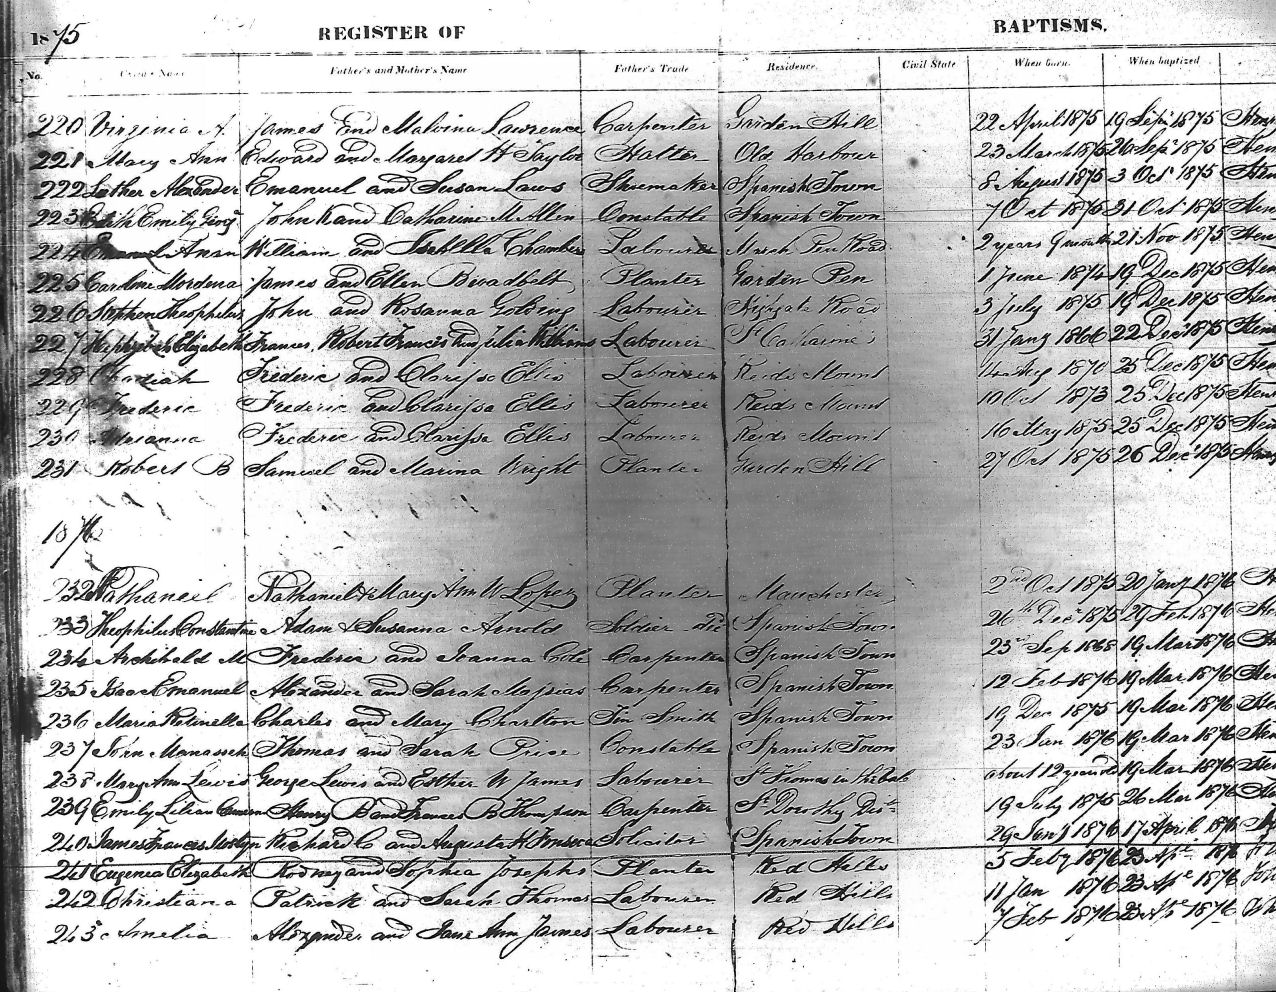 1875 REGISTER OF BAPTISMS.
No. Christian Name Father's and Mother's Name Father's Trade Residence. Civil State When born. When baptized
220 Virginia A. James and Malvina Lawrence Carpenter Garden Hill 22 April 1875 19 Sep 1875
221 Mary Ann Edward and Margaret H Taylor Hatter Old Harbour 23 March 1875 26 Sep 1875
222 Luther Alexander Emanuel and Susan Laws Shoemaker Spanish Town 8 August 1875 3 Oct 1875
223 Edith Emily Georg John K and Catharine McAllen Constable Spanish Town 7 Oct 1875 31 Oct 1875
224 William and Isabella Chambers Labourer March Pen Road 2 years 9 months 21 Nov 1875
225 Caroline Mordena James and Ellen Broadbelt Planter Garden Pen 1 June 1874 19 Dec 1875
226 Stephen Theophilus John and Rosanna Golding Labourer Highgate Road 3 July 1875 19 Dec 1875
227 Hephzibah Elizabeth Frances, Robert Frances and Julia Williams Labourer St Catharine's 31 Jany 1866 22 Dec 1875
228 Frederic and Clarissa Ellis Labourer Reids Mount Aug 1870 25 Dec 1875
229 Frederic Frederic and Clarissa Ellis Labourer Reids Mount 10 Oct 1873 25 Dec 1875
230 Frederic and Clarissa Ellis Labourer Reids Mount 16 May 1875 25 Dec 1875
231 Robert B Samuel and Marina Wright Planter Garden Hill 27 Oct 1875 26 Dec 1875
1876
232 Nathaniel Nathaniel & Mary Ann W Lopez Planter Manchester 2nd Oct 1875 20 Jany 1876
233 Theophilus Constantine Adam & Susanna Arnold Soldier Spanish Town 26th Dec 1875 29 Feb 1876
234 Archibald M Frederic and Joanna Cole Carpenter Spanish Town 23rd Sep 1868 19 Mar 1876
235 Isaac Emanuel Alexander and Sarah Carpenter Spanish Town 12 Feb 1876 19 Mar 1876
236 Maria Rotinella Charles and Mary Charlton Tin Smith Spanish Town 19 Dec 1875 19 Mar 1876
237 John Manasseh Thomas and Sarah Price Constable Spanish Town 23 Jan 1876 19 Mar 1876
238 Mary Ann Lewis George Lewis and Esther W James Labourer St Thomas in the Vale about 12 years old 19 Mar 1876
239 Emily Lilian Henry B and Frances B Thompson Carpenter St Dorothy Dist 19 July 1875 26 Mar 1876
240 James Frances Mostyn Richard C and Augusta H Fonseca Solicitor Spanish Town 29 Jany 1876 17 April 1876
241 Eugenia Elizabeth Rodney and Sophia Josephs Planter Red Hills 5 Feby 1876 23 Apl 1876
242 Christiana Patrick and Sarah Thomas Labourer Red Hills 11 Jan 1876 23 Apl 1876
243 Amelia Alexander and Jane Ann James Labourer Red Hills 7 Feb 1876 23 Apl 1876